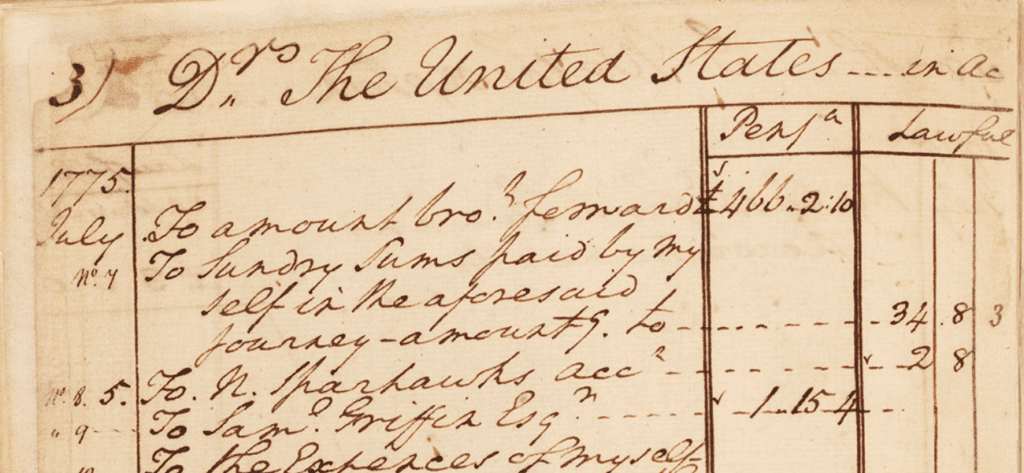 3) Dr.s The United States --- in ac
Pensa Lawful
1775.
July To amount bro.t forward £ 466 „ 2 : 10
No. 7 To Sundry Sums paid by my
self in the aforesaid
journey - amountg. to - - - - 34 . 8 3
No. 8. 5. To. N. Sparhawks acct - - - - 2 8
„ 9 - - To Saml. Griffin Esqr - - - - 1 „ 15 4 - -
10 To the Expences of myself